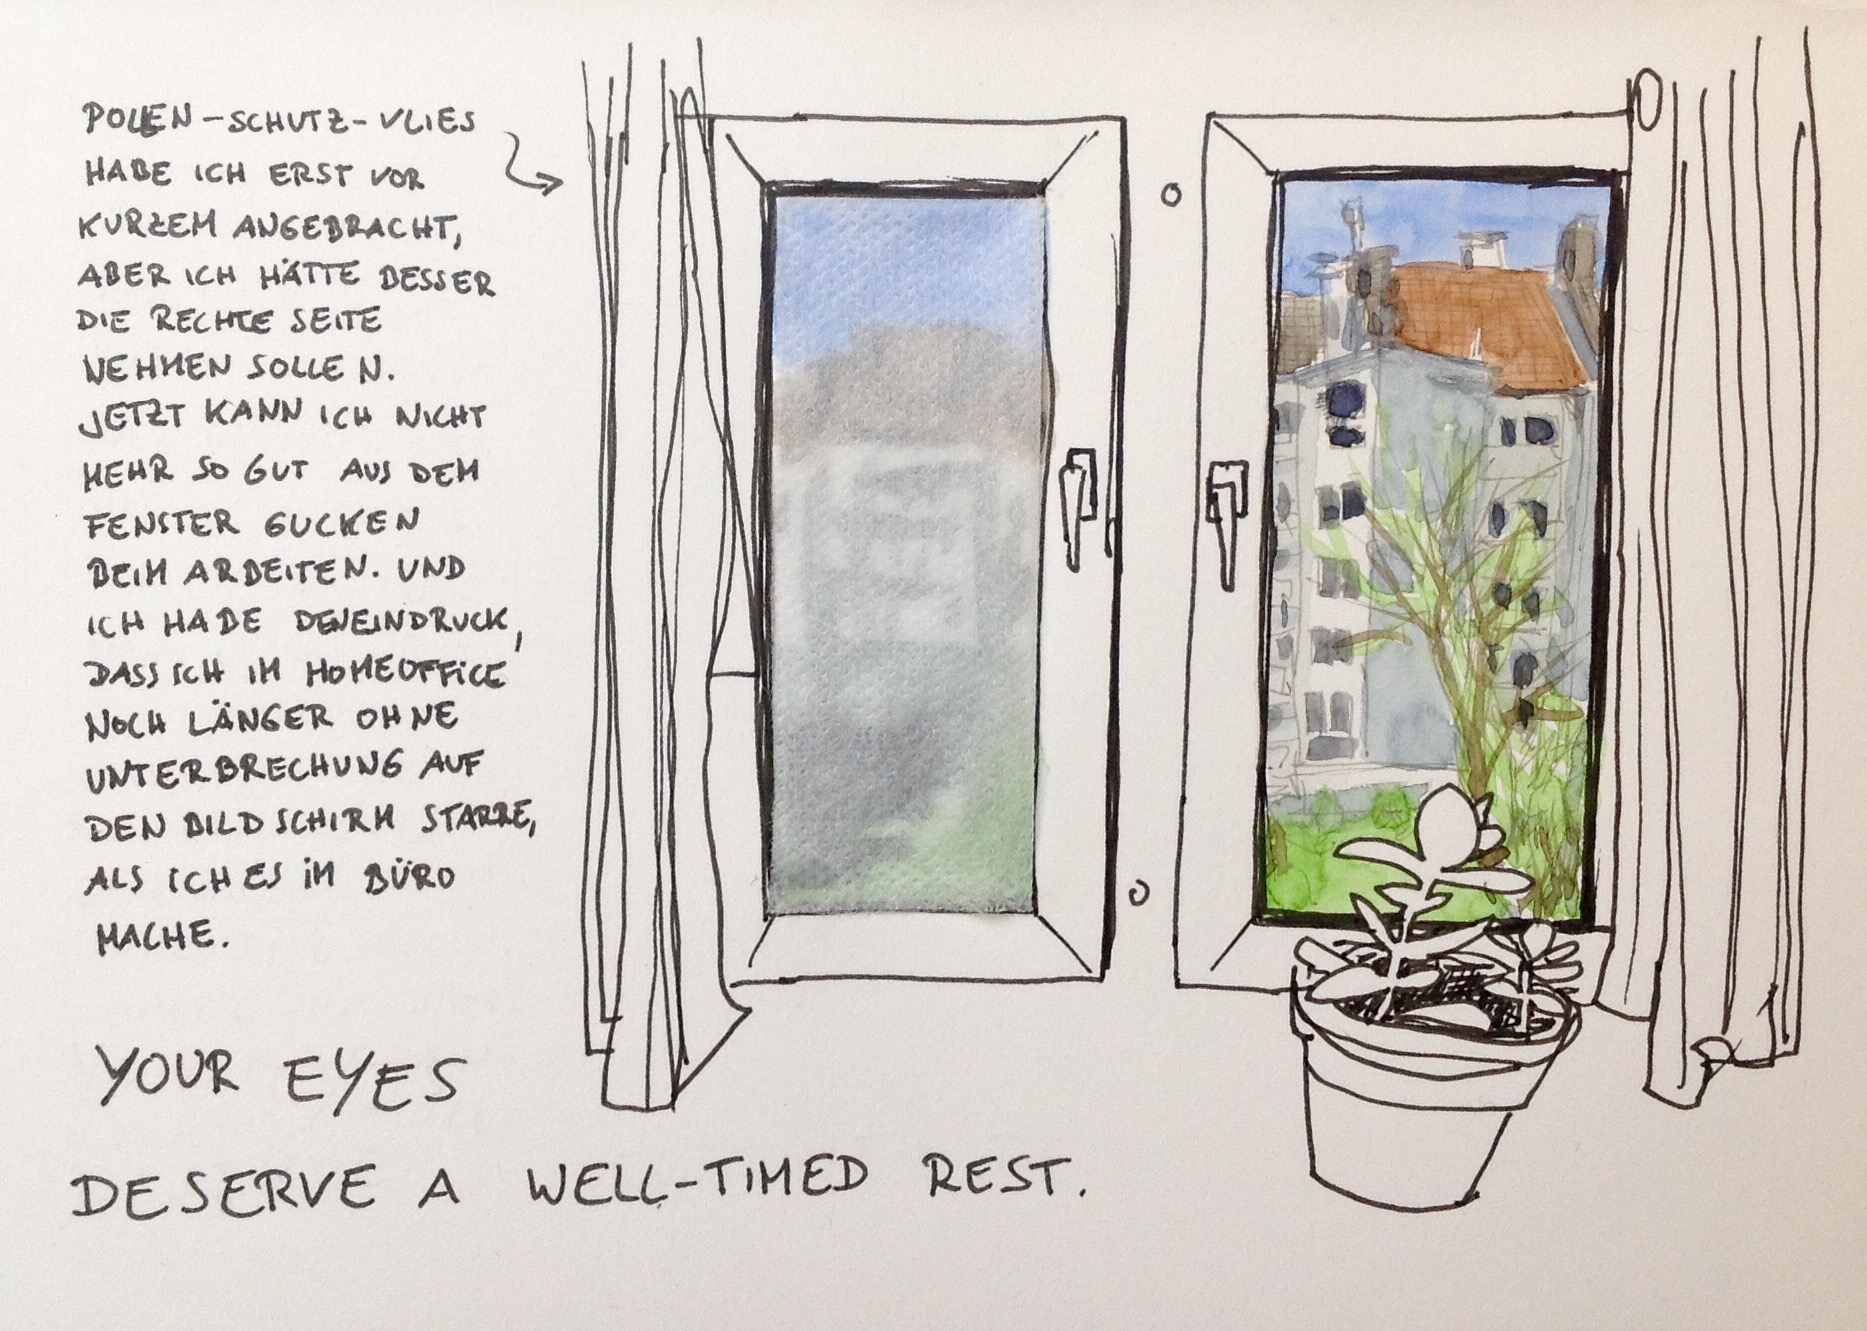 POLLEN-SCHUTZ-VLIES
HABE ICH ERST VOR
KURZEM ANGEBRACHT,
ABER ICH HÄTTE BESSER
DIE RECHTE SEITE
NEHMEN SOLLEN.
JETZT KANN ICH NICHT
MEHR SO GUT AUS DEM
FENSTER GUCKEN
BEIM ARBEITEN. UND
ICH HABE DEN EINDRUCK,
DASS ICH IM HOMEOFFICE
NOCH LÄNGER OHNE
UNTERBRECHUNG AUF
DEN BILDSCHIRM STARRE,
ALS ICH ES IM BÜRO
MACHE.
YOUR EYES
DESERVE A WELL-TIMED REST.